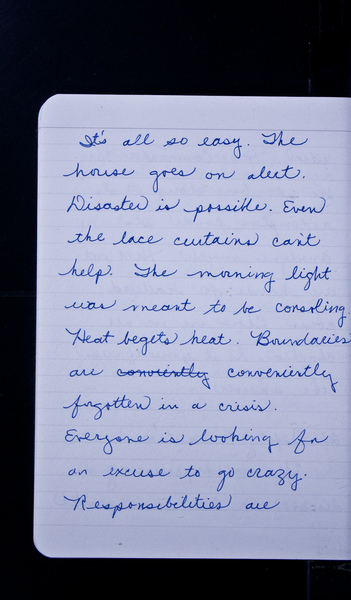 It's all so easy. The
house goes on alert.
Disaster is possible. Even
the lace curtains can't
help. The morning light
was meant to be consoling.
Heat begets heat. Boundaries
are conviently conveniently
forgotten in a crisis.
Everyone is looking for
an excuse to go crazy.
Responsibilities are